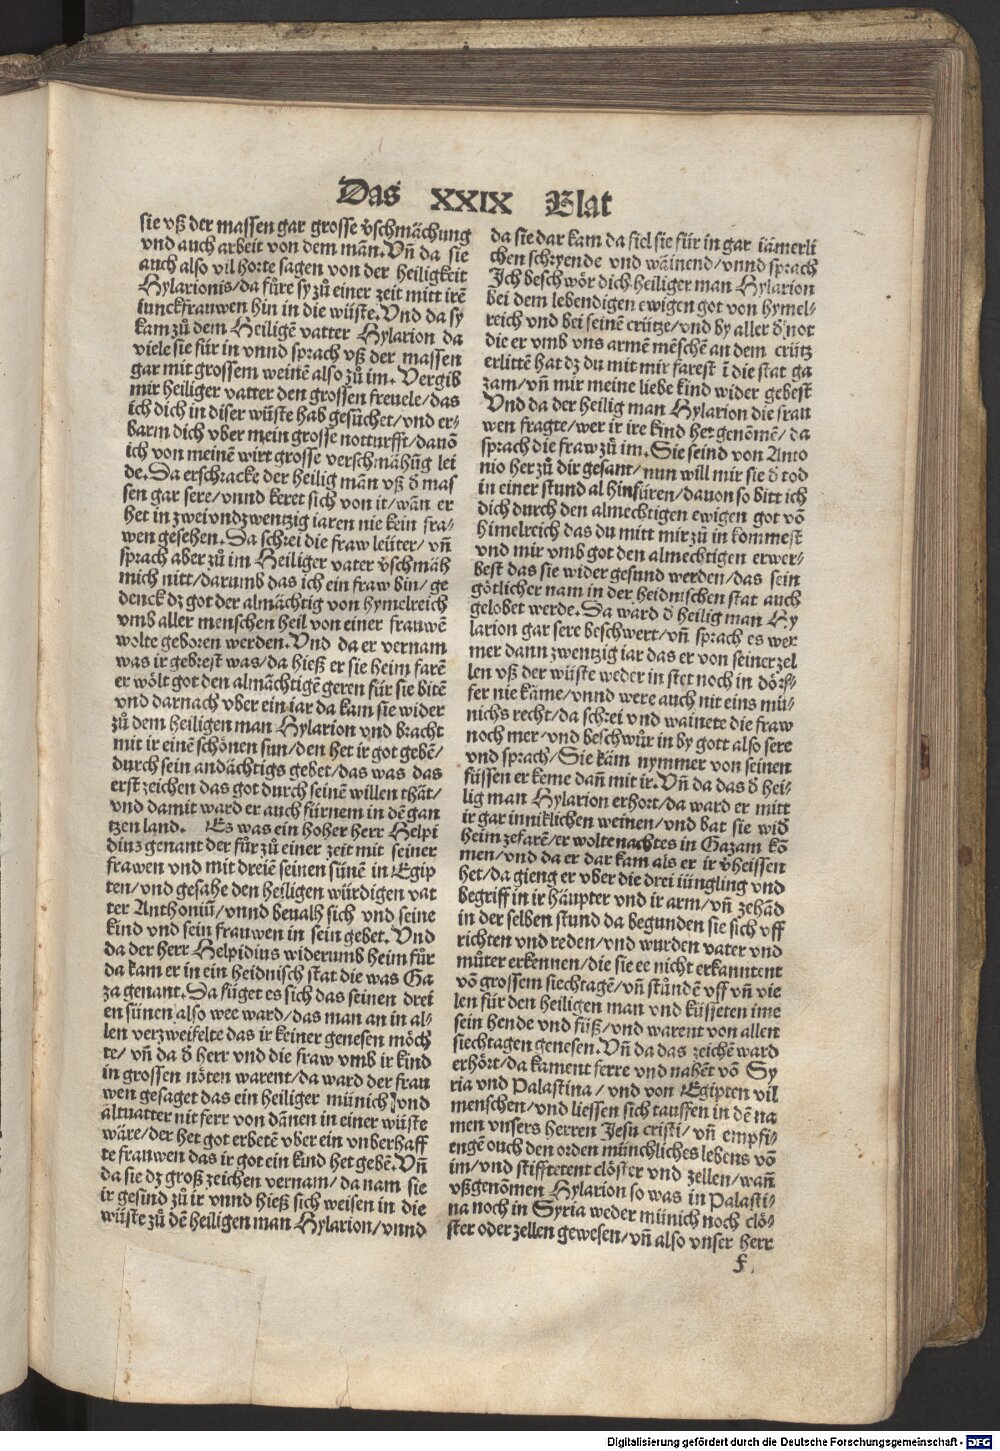 Das XXIX Blat
sie vß der massen gar grosse v̈schmächung
vnd auch arbeit von dem man. Vñ da sie
auch also vil horte sagen von der heiligkeit
Hylarionis/da füre sy zů einer zeit mitt irē
iunckfrauwen hin in die wüste. Vnd da sy
kam zů dem Heiligē vatter Hylarion da
viele sie für in vnnd sprach vß der massen
gar mit grossem weinē also zů im. Vergib
mir heiliger vatter den grossen freuele/das
ich dich in diser wüste hab gesůchet/vnd er-
barm dich vber mein grosse notturfft/dauō
ich von meinē wirt grosse verschmähūg lei
de. Da erschracke der heilig man vß d̕ mas
sen gar sere/vnnd keret sich von it/wān er
het in zweivndzwentzig iaren nie kein fra-
wen gesehen. Da schrei die fraw leüter/vñ
sprach aber zů im Heiliger vater v̈schmäh
mich nitt/darumb das ich ein fraw bin/ge
denck dz got der almächtig von hymelreich
vmb aller menschen heil von einer frauwē
wolte geboren werden. Vnd da er vernam
was ir gebrest was/da hieß er sie heim farē
er wölt got den almächtigē geren für sie bitē
vnd darnach vber ein iar da kam sie wider
zů dem heiligen man Hylarion vnd bracht
mit ir einē schönen sun/den het ir got gebē/
durch sein andächtigs gebet/das was das
erst zeichen das got durch seinē willen thät/
vnd damit ward er auch fürnem in dē gan
tzen land. Es was ein hoher herr Helpi
dius genant der für zů einer zeit mit seiner
frawen vnd mit dreiē seinen sünē in Egip
ten/vnd gesahe den heiligen würdigen vat
ter Anthoniū/vnnd beualh sich vnd seine
kind vnd sein frauwen in sein gebet. Vnd
da der herr Helpidius widerumb heim für
da kam er in ein heidnisch stat die was Ga
za genant. Da füget es sich das seinen drei
en sünen also wee ward/das man an in al-
len verzweifelte das ir keiner genesen möch
te/ vñ da d̕ herr vnd die fraw vmb ir kind
in grossen nöten warent/da ward der frau
wen gesaget das ein heiliger münich vnd
altuatter nit ferr von dānen in einer wüste
wäre/der het got erbetē vber ein vnberhaff
te frauwen das ir got ein kind het gebē. Vñ
da sie dz groß zeichen vernam/da nam sie
ir gesind zů ir vnnd hieß sich weisen in die
wüste zů dē heiligen man Hylarion/vnnd
da sie dar kam da fiel sie für in gar iämerli
chen schryende vnd wainend/vnnd sprach
Ich beschwör dich heiliger man Hylarion
bei dem lebendigen ewigen got von hymel-
reich vnd bei seinē crütze/vnd by aller d̕ not
die er vmb vns armē mēschē an dem crütz
erlittē hat dz du mit mir farest ī die stat ga
zam/vñ mir meine liebe kind wider gebest
Vnd da der heilig man Hylarion die frau
wen fragte/wer ir ire kind het genōmē/da
sprach die fraw zů im. Sie seind von Anto
nio her zů dir gesant/nun will mir sie d̕ tod
in einer stund al hinfüren/dauon so bitt ich
dich durch den almechtigen ewigen got vō
himelreich das du mitt mir zů in kommest
vnd mir vmb got den almechtigen erwer-
best das sie wider gesund werden/das sein
götlicher nam in der heidnischen stat auch
gelobet werde. Da ward d̕ heilig man Hy
larion gar sere beschwert/vñ sprach es wer
mer dann zwentzig iar das er von seiner zel
len vß der wüste weder in stet noch in dörf-
fer nie käme/vnnd were auch nit eins mü-
nichs recht/da schrei vnd wainete die fraw
noch mer/vnd beschwůr in by gott also sere
vnd sprach/Sie käm nymmer von seinen
füssen er keme dañ mit ir. Vñ da das d̕ hei-
lig man Hylarion erhort/da ward er mitt
ir gar inniklichen weinen/vnd bat sie wid̕
heim zefarē/er wolte nachtes in Gazam kō
men/vnd da er dar kam als er ir v̈heissen
het/da gieng er vber die drei iüngling vnd
begriff in ir häupter vnd ir arm/vñ zehād
in der selben stund da begunden sie sich vff
richten vnd reden/vnd wurden vater vnd
můter erkennen/die sie ee nicht erkanntent
vō grossem siechtagē/vñ stůndē vff vñ vie
len für den heiligen man vnd küsseten ime
sein hende vnd füß/vnd warent von allen
siechtagen genesen. Vñ da das zeichē ward
erhört/da kament ferre vnd nahēt vō Sy
ria vnd Palastina/vnd von Egipten vil
menschen/vnd liessen sich tauffen in dē na
men vnsers herren Jesu cristi/vñ empfi-
engē ouch den orden münchliches lebens vō
im/vnd stifftetent clöster vnd zellen/wañ
vßgenōmen Hylarion so was in Palasti-
na noch in Syria weder münich noch clö-
ster oder zellen gewesen/vñ also vnser herr
f
Digitalisierung gefördert durch die Deutsche Forschungsgemeinschaft - DFG